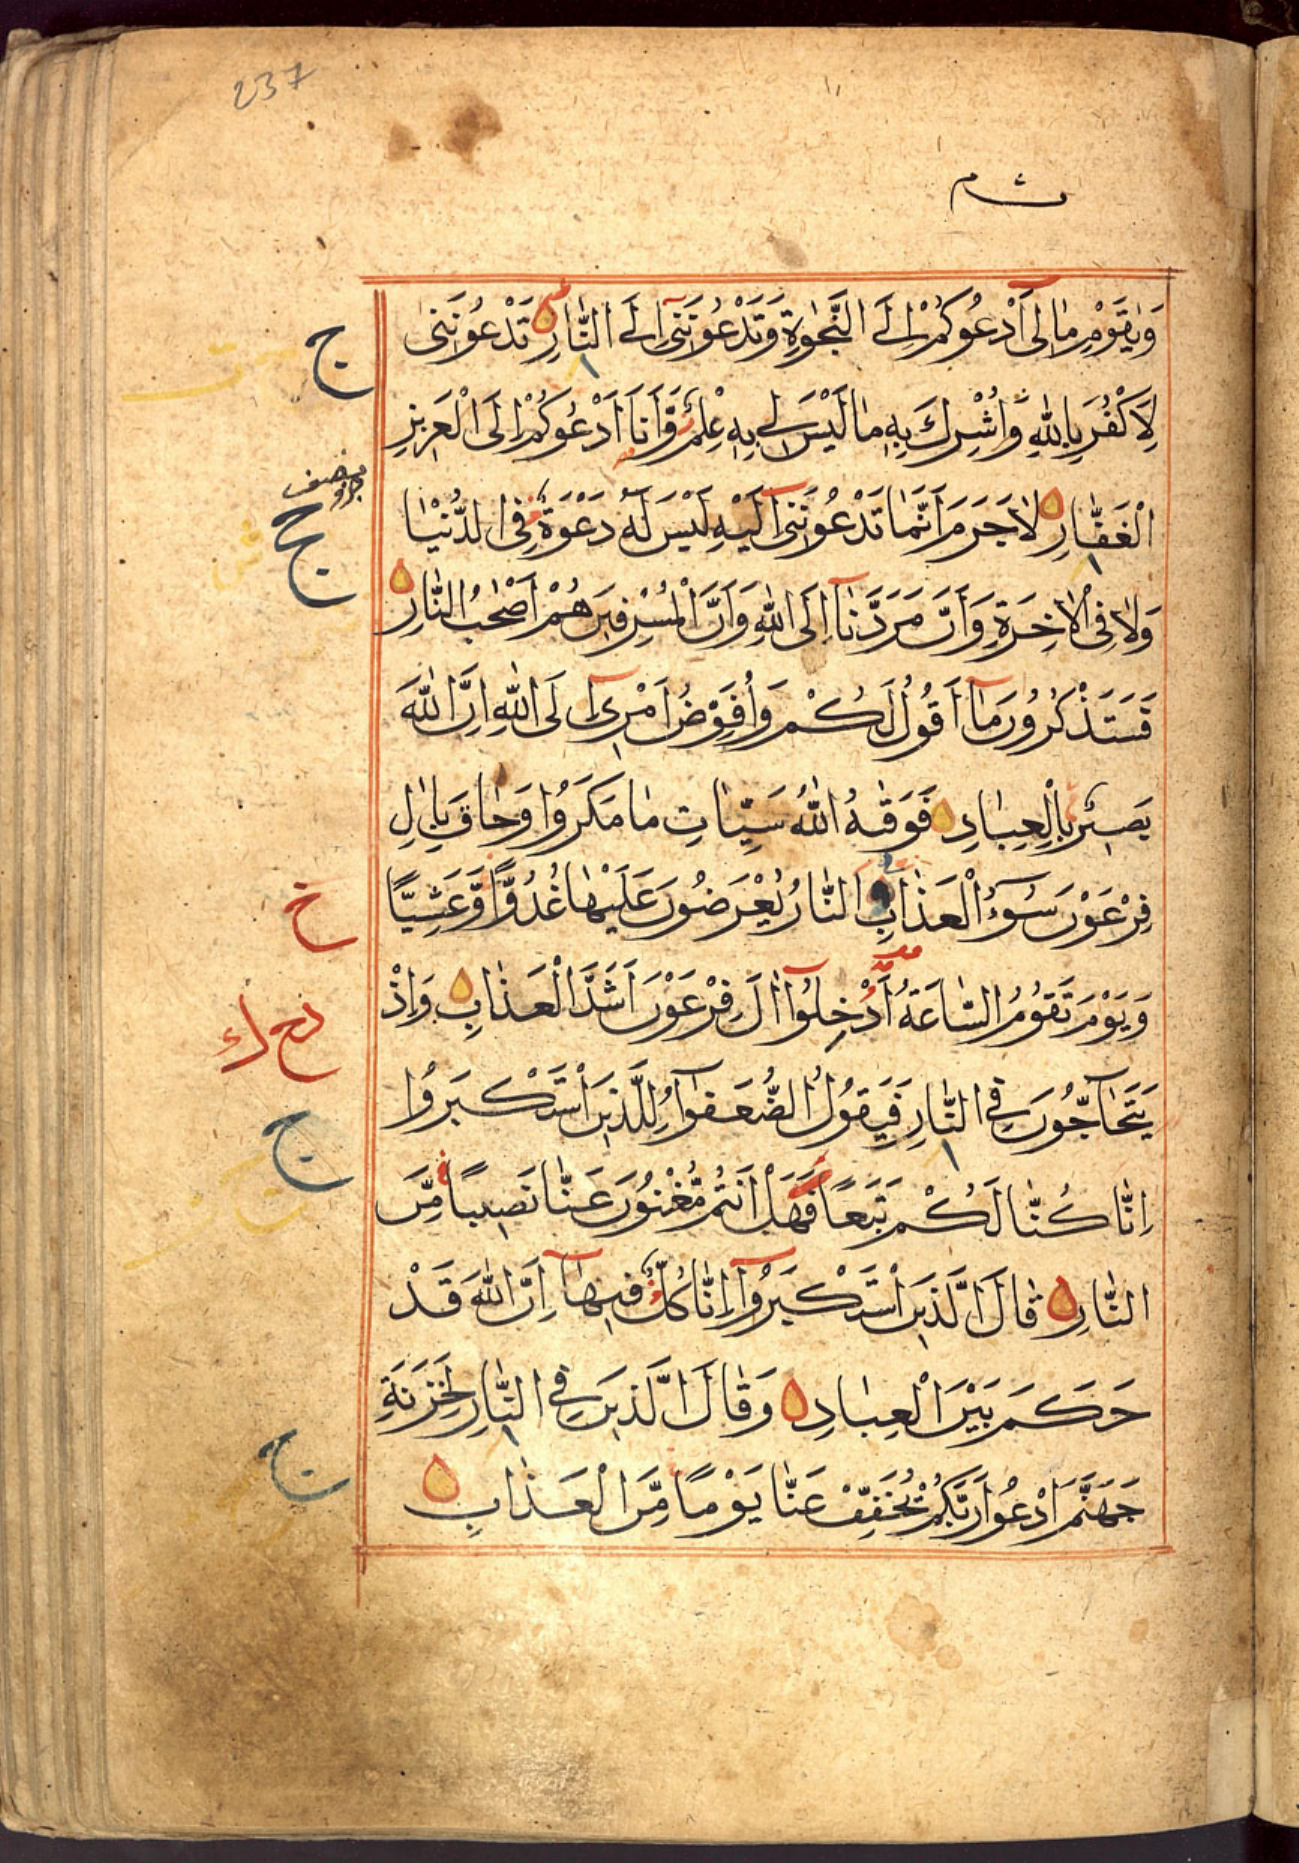 237
وَيٰقَوْمِ مَا لِى أَدْعُوكُمْ إِلَى النَّجٰوةِ وَتَدْعُونَنِى إِلَى النَّارِ تَدْعُونَنِى
لِأَكْفُرَ بِاللّٰهِ وَّأُشْرِكَ بِهٖ مَا لَيْسَ لِى بِهٖ عِلْمٌ وَّأَنَا أَدْعُوكُمْ إِلَى الْعَزِيزِ
الْغَفَّارِ لَا جَرَمَ أَنَّمَا تَدْعُونَنِى إِلَيْهِ لَيْسَ لَهُ دَعْوَةٌ فِى الدُّنْيَا
وَلَا فِى الْاٰخِرَةِ وَأَنَّ مَرَدَّنَا إِلَى اللّٰهِ وَأَنَّ الْمُسْرِفِينَ هُمْ أَصْحٰبُ النَّارِ
فَسَتَذْكُرُونَ مَا أَقُولُ لَكُمْ وَأُفَوِّضُ أَمْرِى إِلَى اللّٰهِ إِنَّ اللّٰهَ
بَصِيرٌ بِالْعِبَادِ فَوَقٰهُ اللّٰهُ سَيِّاٰتِ مَا مَكَرُوا وَحَاقَ بِاٰلِ
فِرْعَوْنَ سُوءُ الْعَذَابِ النَّارُ يُعْرَضُونَ عَلَيْهَا غُدُوًّا وَّعَشِيًّا
وَيَوْمَ تَقُومُ السَّاعَةُ أَدْخِلُوا اٰلَ فِرْعَوْنَ أَشَدَّ الْعَذَابِ وَإِذْ
يَتَحَاجُّونَ فِى النَّارِ فَيَقُولُ الضُّعَفٰؤُا لِلَّذِينَ اسْتَكْبَرُوا
إِنَّا كُنَّا لَكُمْ تَبَعًا فَهَلْ أَنْتُمْ مُّغْنُونَ عَنَّا نَصِيبًا مِّنَ
النَّارِ قَالَ الَّذِينَ اسْتَكْبَرُوا إِنَّا كُلٌّ فِيهَا إِنَّ اللّٰهَ قَدْ
حَكَمَ بَيْنَ الْعِبَادِ وَقَالَ الَّذِينَ فِى النَّارِ لِخَزَنَةِ
جَهَنَّمَ ادْعُوا رَبَّكُمْ يُخَفِّفْ عَنَّا يَوْمًا مِّنَ الْعَذَابِ